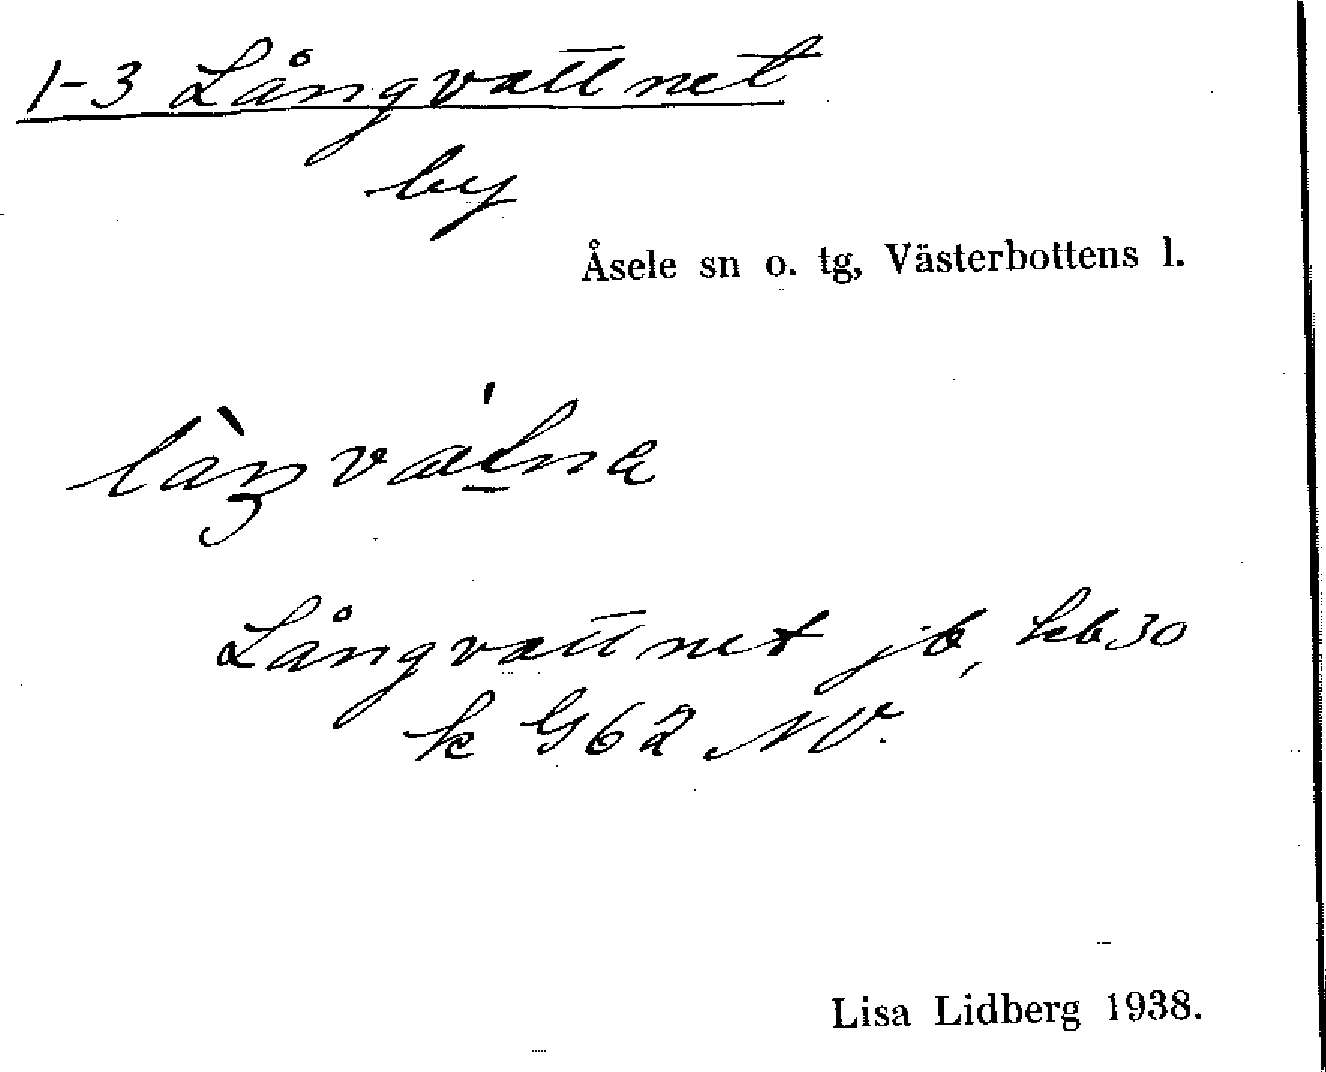 1-3 Långvattnet
by
Åsele sn o. tg, Västerbottens l.
Långvattnet jb, hb 30
k G62 NV.
Lisa Lidberg 1938.